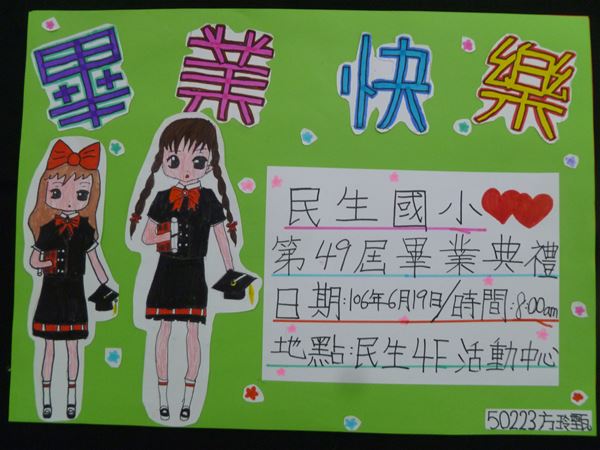 畢業快樂
民生國小
第49屆畢業典禮
日期:106年6月19日/時間:8:00am
地點:民生4F活動中心
50223方玲甄